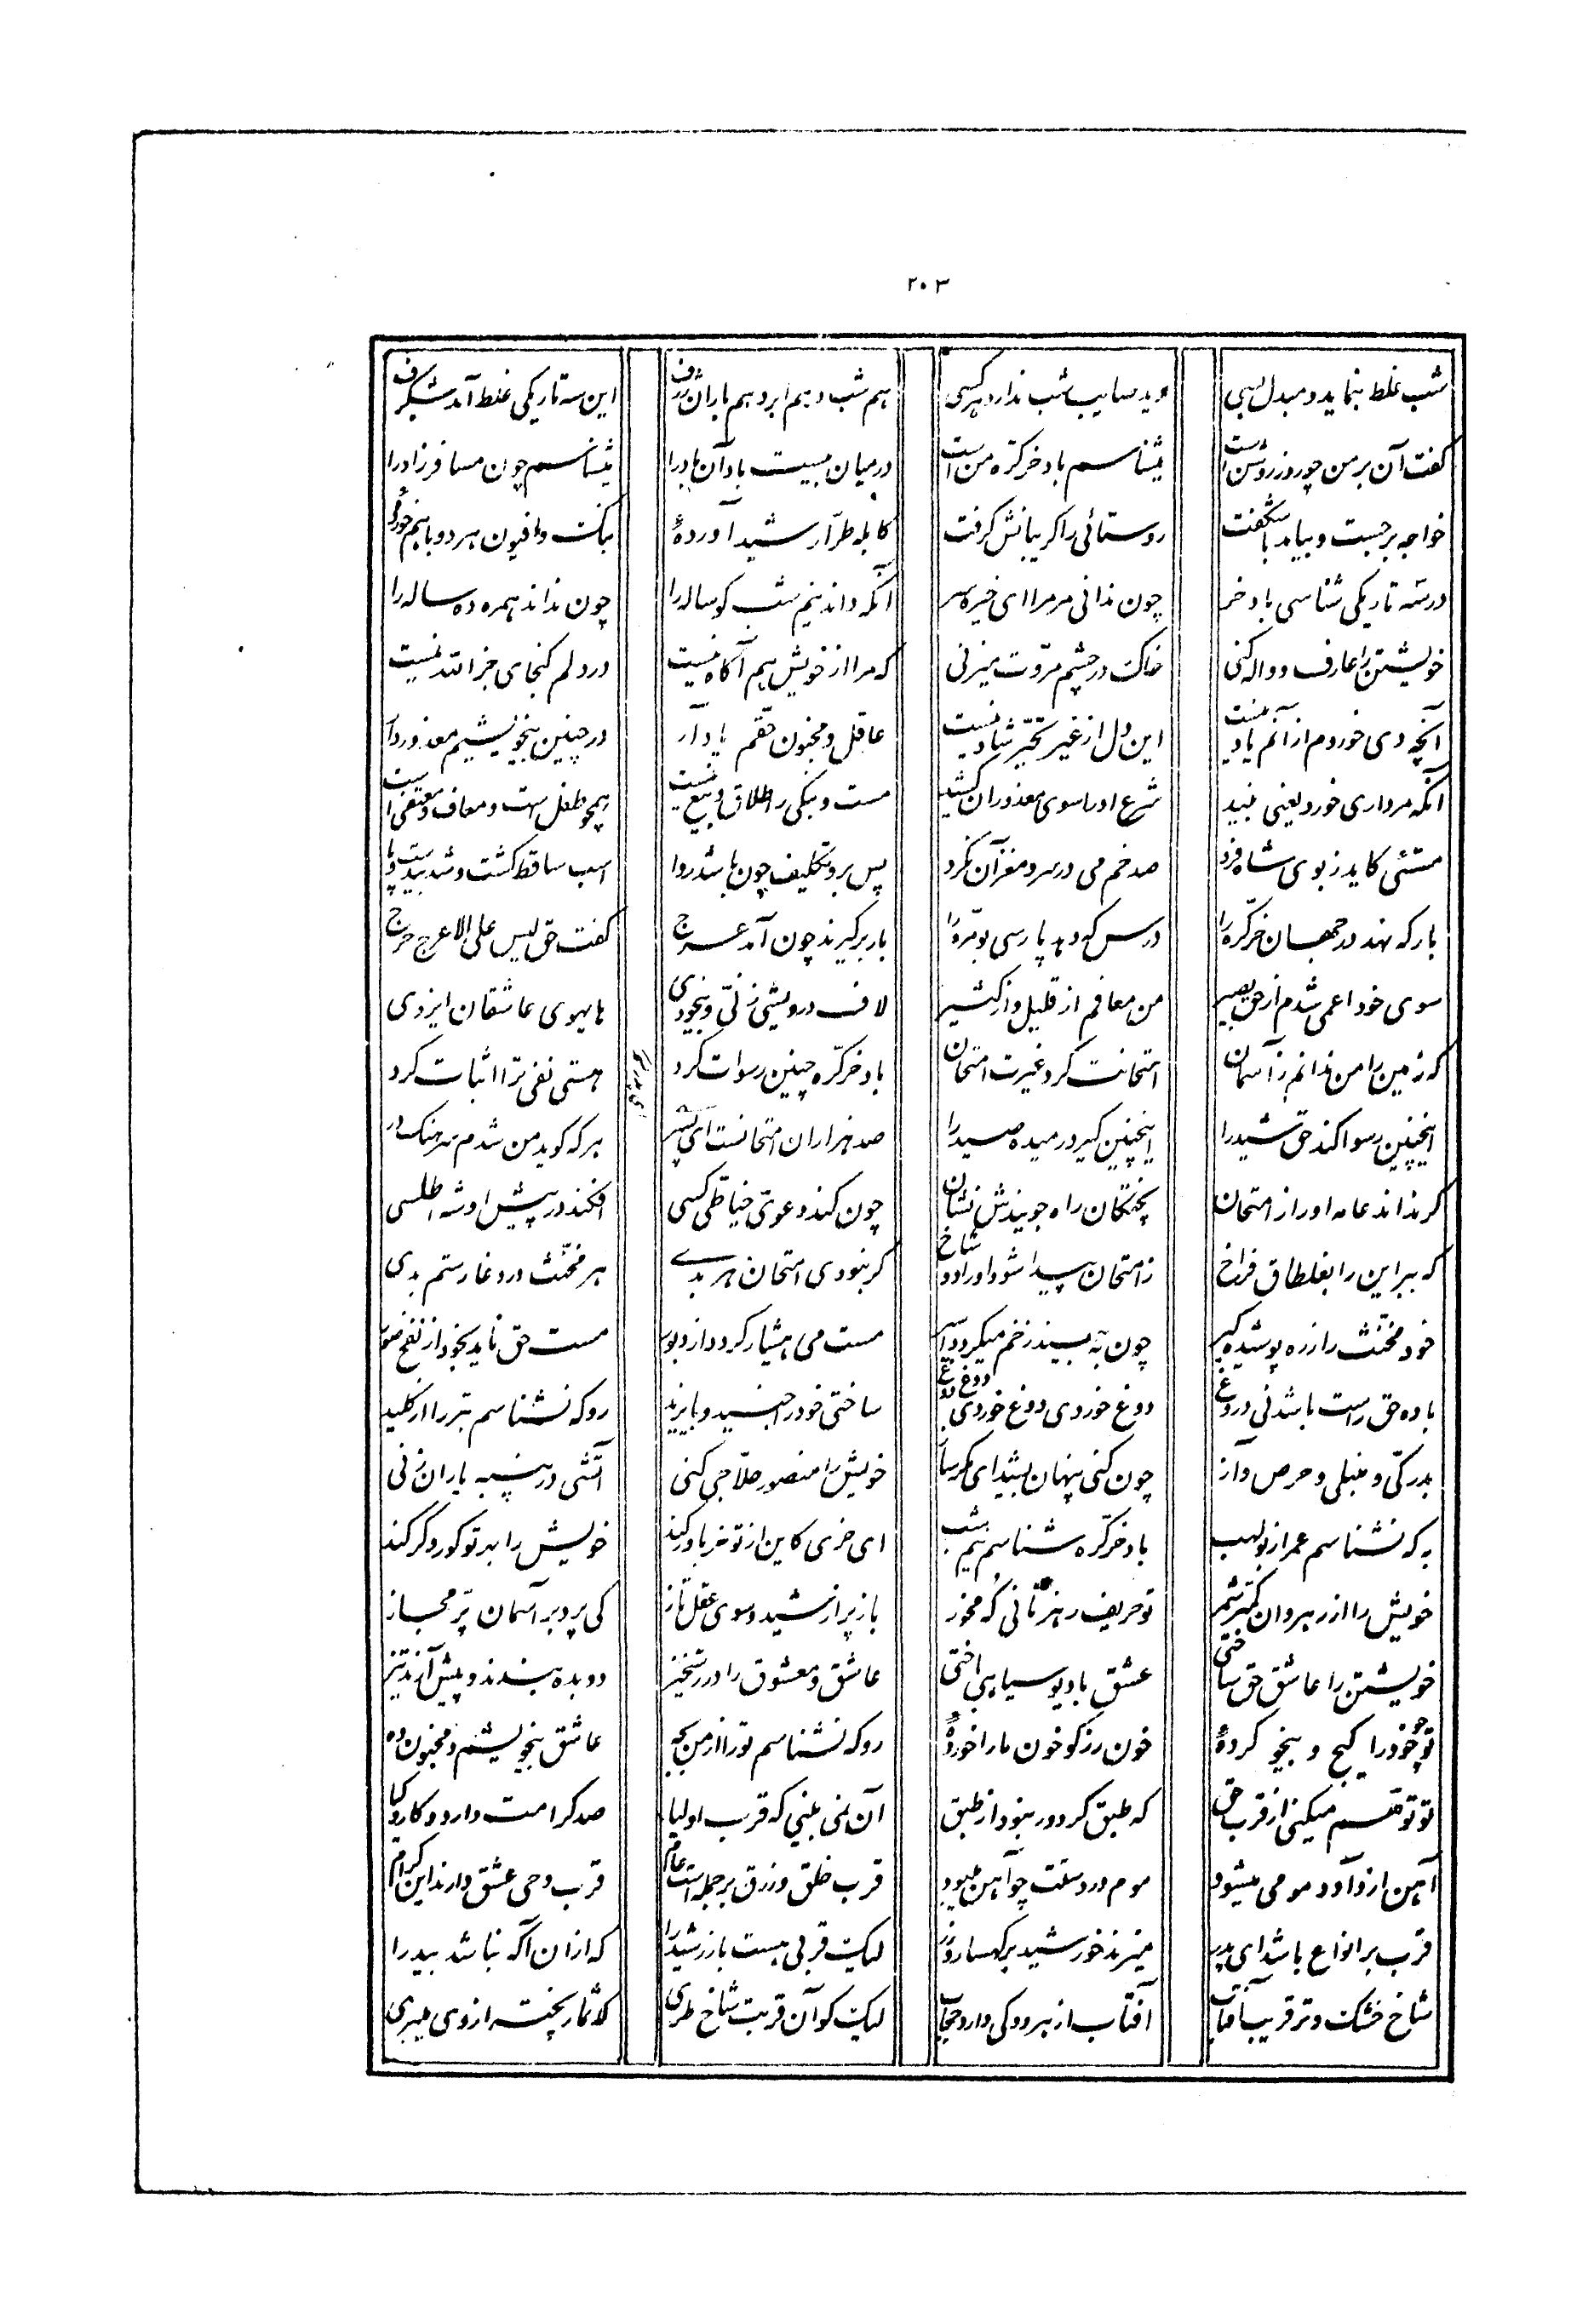 ۲۰۳
شب غلط بنماید و مبدل بسی دید صایب شب ندارد هر کسی هم شب و هم ابر و هم باران ژرف این سه تاریکی غلط آمد شگرف
گفت آن بر من چو روز روشن است میشناسم باد خر کره من است در میان بیست باد آن باد را میشناسم چون مسافر زاد را
خواجه برجست و بیامد ناشگفت روستائی را گریبانش گرفت کابله طرّار شید آوردهٔ بنگ و افیون هر دو باهم خوردهٔ
در سه تاریکی شناسی باد خر چون ندانی مر مرا ای خیره سر آنکه داند نیم شب گوساله را چون نداند همره ده ساله را
خویشتن را عارف و واله کنی خاک در چشم مروّت میزنی که مرا از خویش هم آگاه نیست در دلم گنجای جز الله نیست
آنچه دی خوردم از آنم یاد نیست این دل از غیر تحیّر شاد نیست عاقل و مجنون حقم یاد آر در چنین بیخویشیم معذور دار
آنکه مرداری خورد یعنی نبید شرع او را سوی معذوران کشید مست و بنگی را طلاق و بیع نیست همچو طفل است و معاف و معتقی است
مستئی کاید ز بوی شاه فرد صد خم می در سر و مغز آن نکرد پس بر و تکلیف چون باشد روا اسب ساقط گشت و شد بی دست و پا
بار که نهد در جهان خر کرّه را درس که دهد پارسی بو مرّه را بار برگیرند چون آمد عرج گفت حق لیس علی الاعرج حرج
سوی خود اعمی شدم از حق بصیر من معافم از قلیل و از کثیر لاف درویشی زنی و بیخودی هایهوی عاشقان ایزدی
که زمین را من ندانم ز آسمان امتحانت کرد غیرت امتحان باد خر کرّه چنین رسوات کرد هستی نفی ترا اثبات کرد
اینچنین رسوا کند حق شید را اینچنین گیرد رمیده صید را صد هزاران امتحانست ای پسر هر که گوید من شدم سرهنگ در
گر نداند عامه او را ز امتحان پختگان راه جویندش نشان چون کند دعوی خیاطی کسی افکند در پیش او شه اطلسی
که ببر این را بغلطاق فراخ ز امتحان پیدا شود او را دو شاخ گر نبودی امتحان هر بدی هر مخنّث در وغا رستم بدی
خود مخنّث را زره پوشیده گیر چون به بیند زخم میگردد اسیر مست می هشیار گردد از دبور مست حق ناید بخود از نفخ صور
باده حق راست باشد نی دروغ دوغ خوردی دوغ خوردی دوغ دوغ ساختی خود را جنید و بایزید رو که نشناسم تبر را از کلید
بدرگی و منبلی و حرص و آز چون کنی پنهان بشید ای مکرساز خویش را منصور حلّاجی کنی آتشی در پنبه یاران زنی
که نشناسم عمر از بولهب باد خر کرّه شناسم نیم شب ای خری کاین از تو خر باور کند خویش را بهر تو کور و کر کند
خویش را از رهروان کمتر شمر تو حریف رهزنانی گه مخور باز پر از شید و سوی عقل تاز کی پرد بر آسمان پرّ مجاز
خویشتن را عاشق حق ساختی عشق با دیو سیاهی باختی عاشق و معشوق را در رستخیز دو بدو بندند و پیش آرند تیز
تو چه خود را گیج و بیخود کردهٔ خون رز کو خون ما را خوردهٔ رو که نشناسم تو را از من بجه عاشق بیخویشم و مجنون ده
تو توهّم میکنی از قرب حق که طبق گر دور نبود از طبق آن نمی بینی که قرب اولیا صد کرامت دارد و کار و کیا
آهن از داود مومی میشود موم در دستت چو آهن میبود قرب خلق و رزق بر جمله است عام قرب وحی عشق دارند این کرام
قرب بر انواع باشد ای پدر میزند خورشید بر کهسار و زر لیک قربی هست با زر شید را که ازان آگه نباشد بید را
شاخ خشک و تر قریب آفتاب آفتاب از هر دو کی دارد حجاب لیک کو آن قربت شاخ طری که ثمار پخته از وی میبری